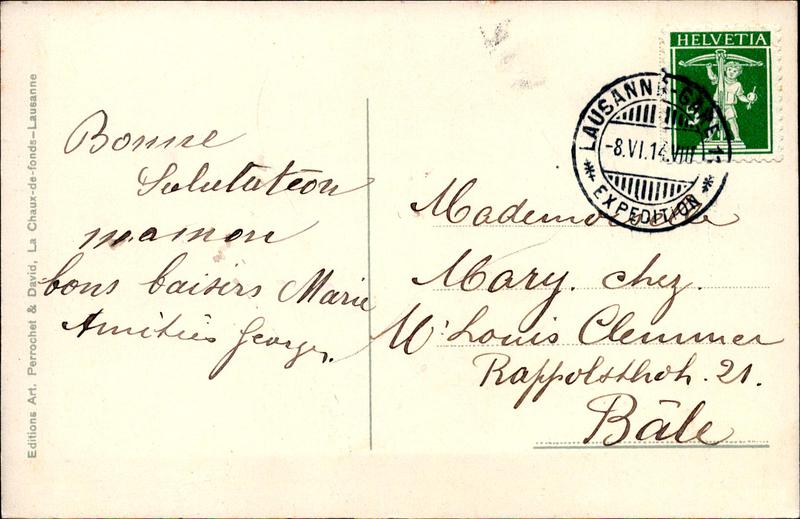 Editions Art. Perrochet & David, La Chaux-de-fonds-Lausanne
Bonne
Salutation
maman
bons baisers Marie
Amitiés Georges
HELVETIA
LAUSANNE-GARE
-8.VI.14.VIII
EXPEDITION
Mademoiselle
Mary. chez.
Mr Louis Clemmer
Rappolsthoh. 21.
Bâle